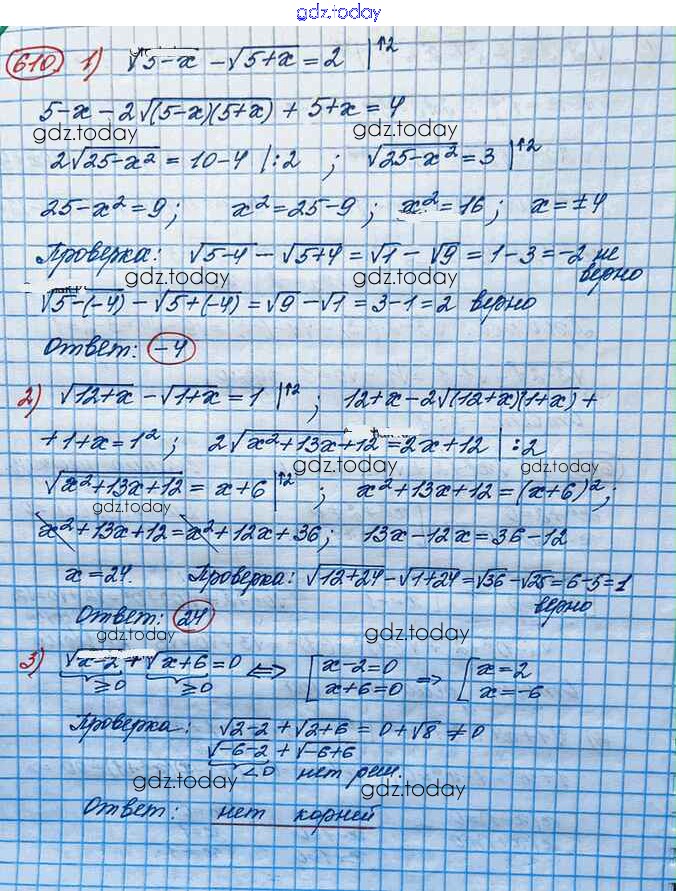 gdz.today
610. 1) √5-x - √5+x = 2 |↑2
5-x-2√(5-x)(5+x) + 5+x = 4
gdz.today gdz.today
2√25-x² = 10-4 |:2 ; √25-x² = 3 |↑2
25-x² = 9; x² = 25-9; x² = 16; x = ±4
Проверка: √5-4 - √5+4 = √1 - √9 = 1-3 = -2 не верно
gdz.today gdz.today
√5-(-4) - √5+(-4) = √9 - √1 = 3-1 = 2 верно
Ответ: -4
2) √12+x - √1+x = 1 |↑2 ; 12+x-2√(12+x)(1+x) +
+1+x = 1² ; 2√x²+13x+12 = 2x+12 |:2
gdz.today gdz.today
√x²+13x+12 = x+6 |↑2 ; x²+13x+12 = (x+6)²;
gdz.today
x²+13x+12 = x²+12x+36; 13x-12x = 36-12
x = 24. Проверка: √12+24 - √1+24 = √36 - √25 = 6-5 = 1
верно
Ответ: 24
gdz.today gdz.today
3) √x-2 + √x+6 = 0 ⟺ [ x-2=0 ⇒ [ x=2
≥0 ≥0 x+6=0 x=-6
Проверка: √2-2 + √2+6 = 0+√8 ≠ 0
√-6-2 + √-6+6
<0 нет реш.
gdz.today gdz.today
Ответ: нет корней